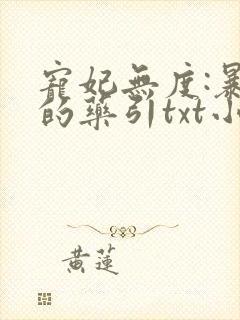 寵妃無度:暴
的藥引txt小
黃蓮